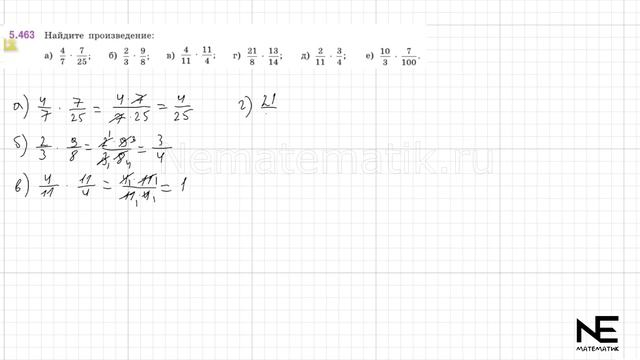 5.463 Найдите произведение:
а) 4/7 · 7/25; б) 2/3 · 9/8; в) 4/11 · 11/4; г) 21/8 · 13/14; д) 2/11 · 3/4; е) 10/3 · 7/100.
а) 4/7 · 7/25 = 4·7/7·25 = 4/25 г) 21/
б) 2/3 · 9/8 = 2·9/3·8 = 3/4
в) 4/11 · 11/4 = 4·11/11·4 = 1
Nematematik.ru
NE
МАТЕМАТИК